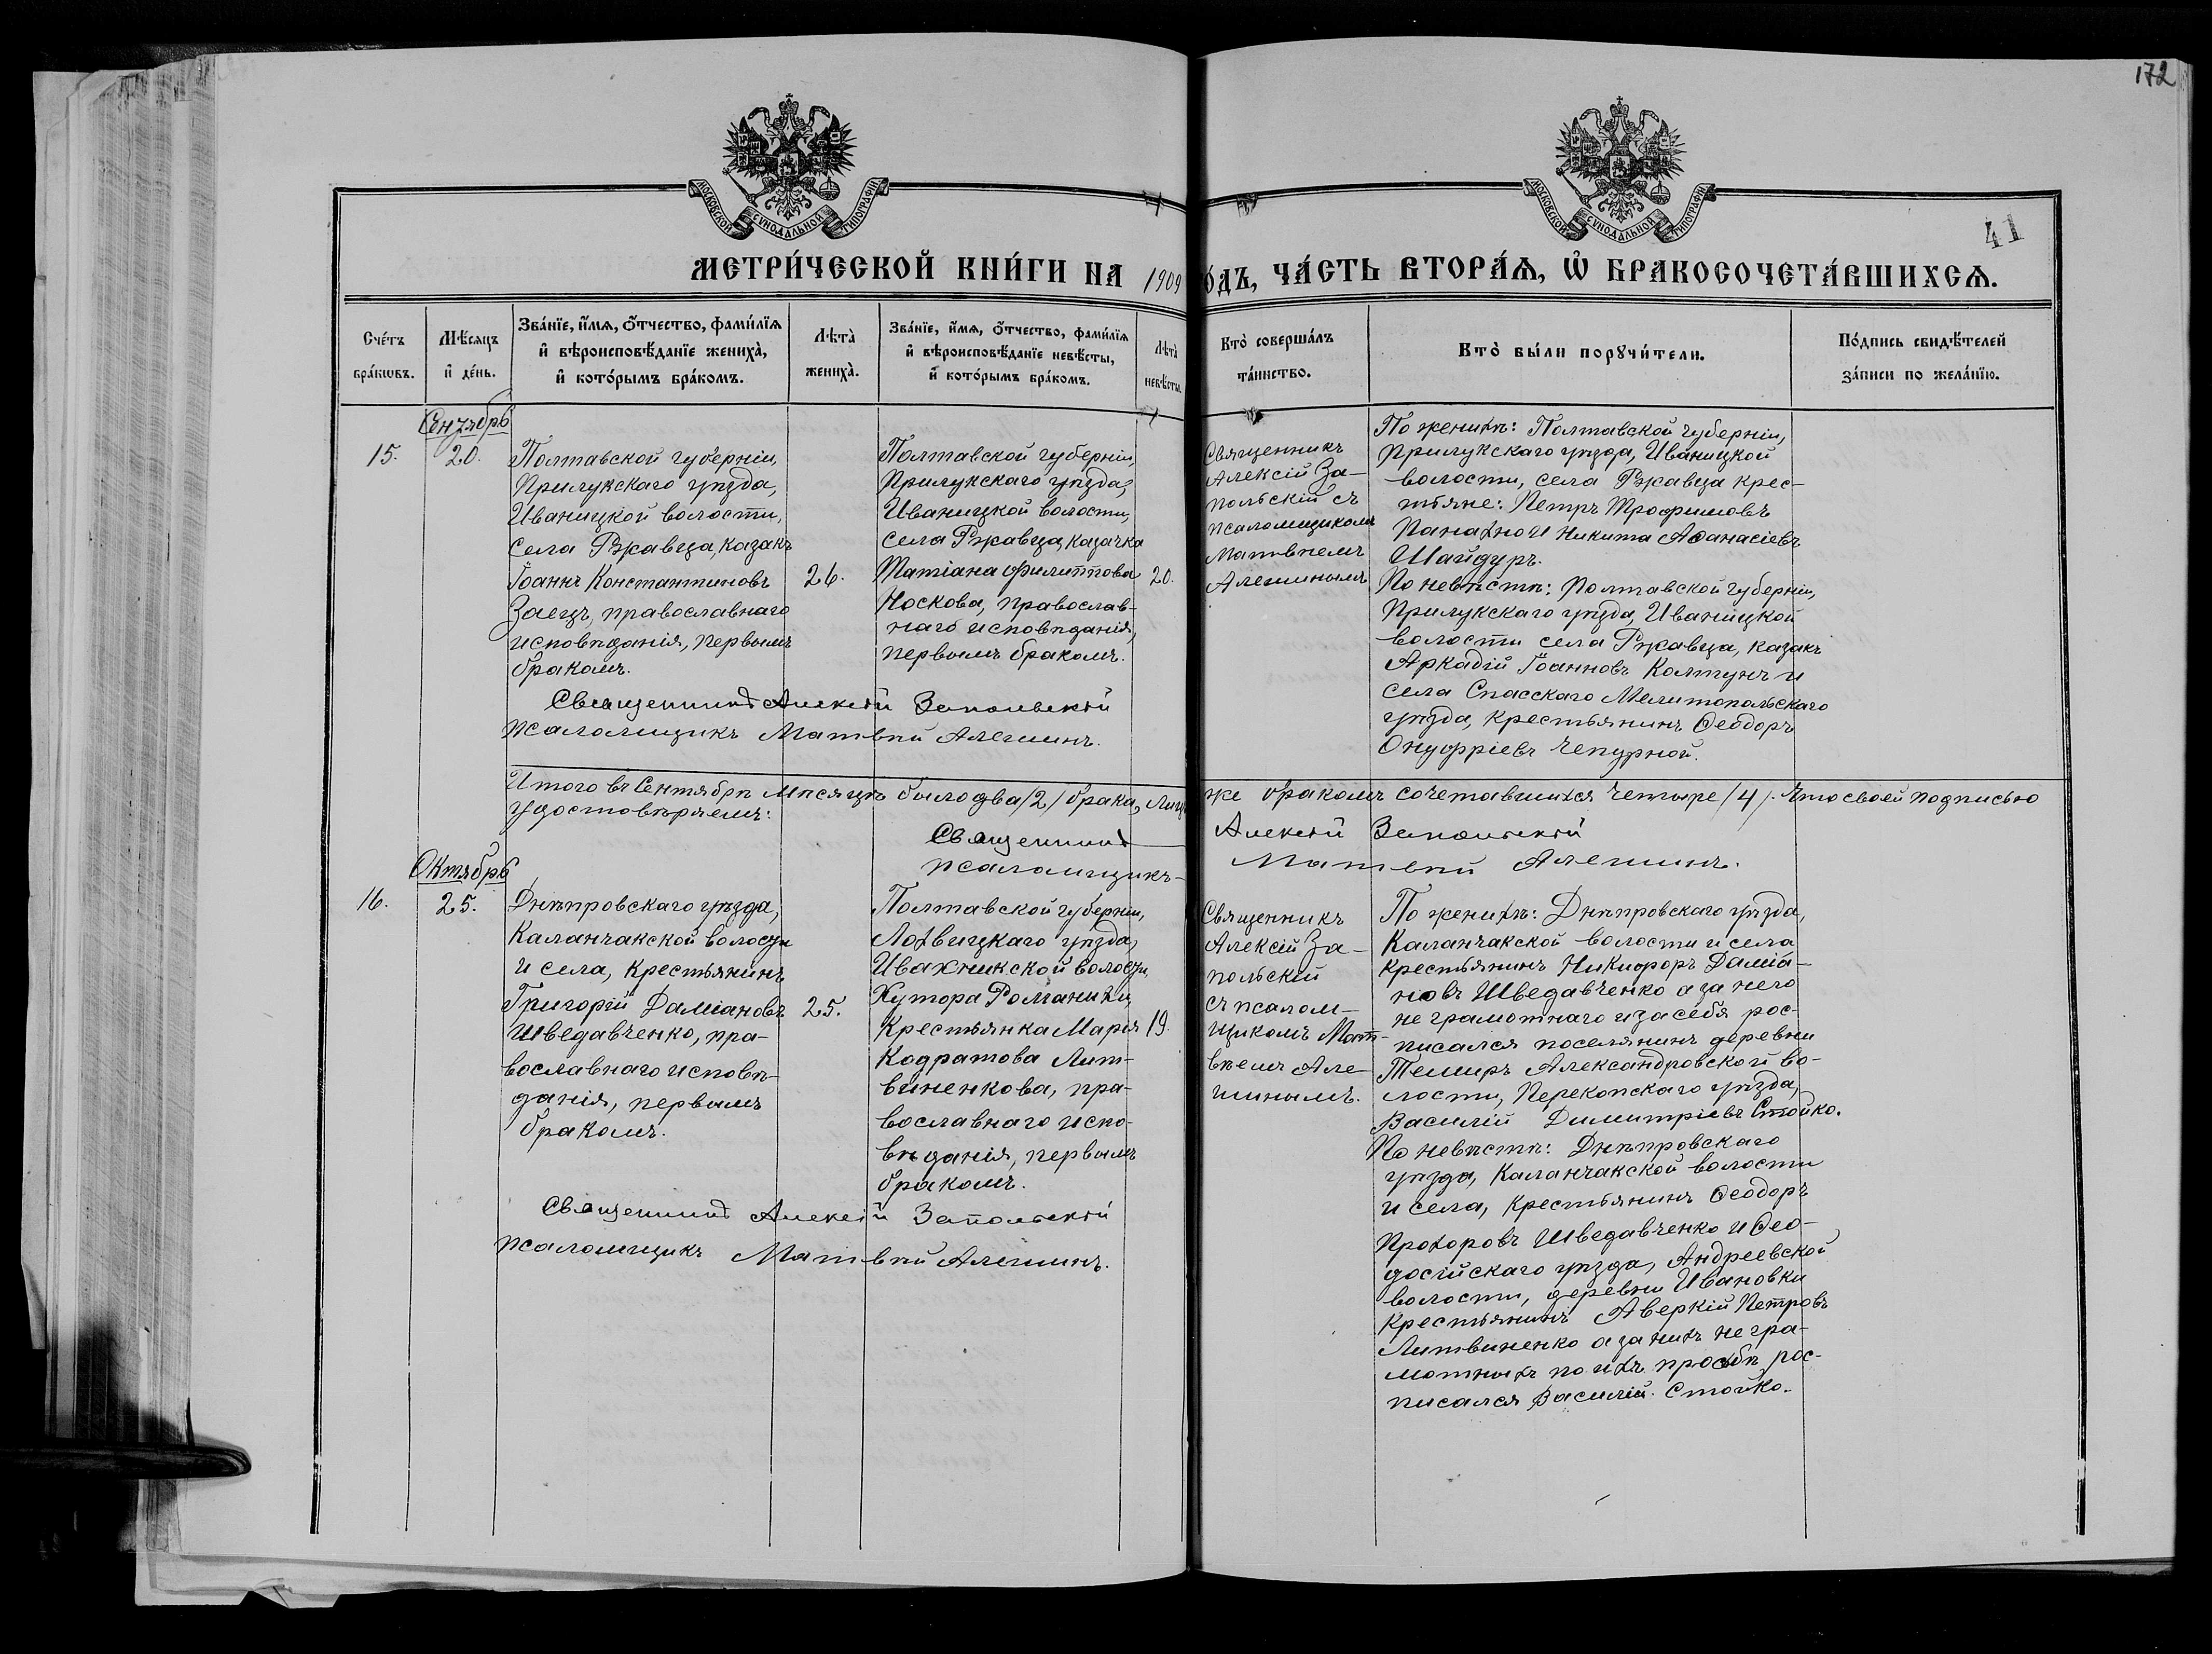 172
МОСКОВСКОЙ СѴНОДАЛЬНОЙ ТИПОГРАФІИ
МОСКОВСКОЙ СѴНОДАЛЬНОЙ ТИПОГРАФІИ
41
МЕТРИ́ЧЕСКОЙ КНИ́ГИ НА 1909 ГО́ДЪ, ЧА́СТЬ ВТОРА́Ѧ, Ѡ҆ БРАКОСОЧЕТА́ВШИХСѦ.
Сче́тъ бра́кѡвъ.
Мѣ́сяцъ и҆ де́нь.
Зва́нїе, и҆́мѧ, ѻ҆́тчество, фами́лїѧ
и҆ вѣроисповѣ́данїе жениха̀,
и҆ кото́рымъ бра́комъ.
Лѣта̀ жениха̀.
Зва́нїе, и҆́мѧ, ѻ҆́тчество, фами́лїѧ
и҆ вѣроисповѣ́данїе невѣ́сты,
и҆ кото́рымъ бра́комъ.
Лѣта̀ невѣ́сты.
Кто̀ соверша́лъ
та́инство.
Кто̀ бы́ли порꙋчи́тели.
По́дпись свидѣ́телей
за́писи по жела́нїю.
Сентябрь
15.
20.
Полтавской губерніи,
Прилукскаго уѣзда,
Иваницкой волости,
села Ржавца, казакъ
Іоаннъ Константиновъ
Заецъ, православнаго
исповѣданія, первымъ
бракомъ.
26.
Полтавской губерніи,
Прилукскаго уѣзда,
Иваницкой волости,
села Ржавца, казачка
Татіана Филиппова
Носкова, православ-
наго исповѣданія,
первымъ бракомъ.
20.
Священникъ
Алексій За-
польскій съ
псаломщикомъ
Матвѣемъ
Алешинымъ
По женихѣ: Полтавской губерніи,
Прилукскаго уѣзда, Иваницкой
волости, села Ржавца крес-
тьяне: Петръ Трофимовъ
Панахно и Никита Аѳанасіевъ
Шайдуръ.
По невѣстѣ: Полтавской губерніи,
Прилукскаго уѣзда, Иваницкой
волости села Ржавца, казакъ
Аркадій Іоанновъ Колтунъ и
села Спасскаго Мелитопольскаго
уѣзда, крестьянинъ Ѳеодоръ
Онуфріевъ Чепурной.
Священникъ Алексій Запольскій
Псаломщикъ Матвѣй Алешинъ.
Итого въ Сентябрѣ мѣсяцѣ было два /2/ брака, лицъ же бракомъ сочетавшихся четыре /4/. Что своей подписью
удостовѣряемъ:
Священникъ Алексій Запольскій
Псаломщикъ Матвѣй Алешинъ.
Октябрь
16.
25.
Днѣпровскаго уѣзда,
Каланчакской волости
и села, крестьянинъ
Григорій Даміановъ
Шведавченко, пра-
вославнаго исповѣ-
данія, первымъ
бракомъ.
25.
Полтавской губерніи,
Лохвицкаго уѣзда,
Ивахникской волости,
Хутора Романихи,
крестьянка Марія
Кодратова Лит-
виненкова, пра-
вославнаго испо-
вѣданія, первымъ
бракомъ.
19.
Священникъ
Алексій За-
польскій
съ псалом-
щикомъ Мат-
вѣемъ Але-
шинымъ.
По женихѣ: Днѣпровскаго уѣзда,
Каланчакской волости и села
крестьянинъ Никифоръ Даміа-
новъ Шведавченко а за него
не грамотнаго и за себя рос-
писался поселянинъ деревни
Темиръ Александровской во-
лости, Перекопскаго уѣзда,
Василій Димитріевъ Стойко.
По невѣстѣ: Днѣпровскаго
уѣзда, Каланчакской волости
и села, крестьянинъ Ѳеодоръ
Прохоровъ Шведавченко и Ѳео-
досійскаго уѣзда, Андреевской
волости, деревни Ивановки
крестьянинъ Аверкій Петровъ
Литвиненко а за нихъ негра-
мотныхъ по ихъ просьбѣ рос-
писался Василій Стойко.
Священникъ Алексій Запольскій
Псаломщикъ Матвѣй Алешинъ.